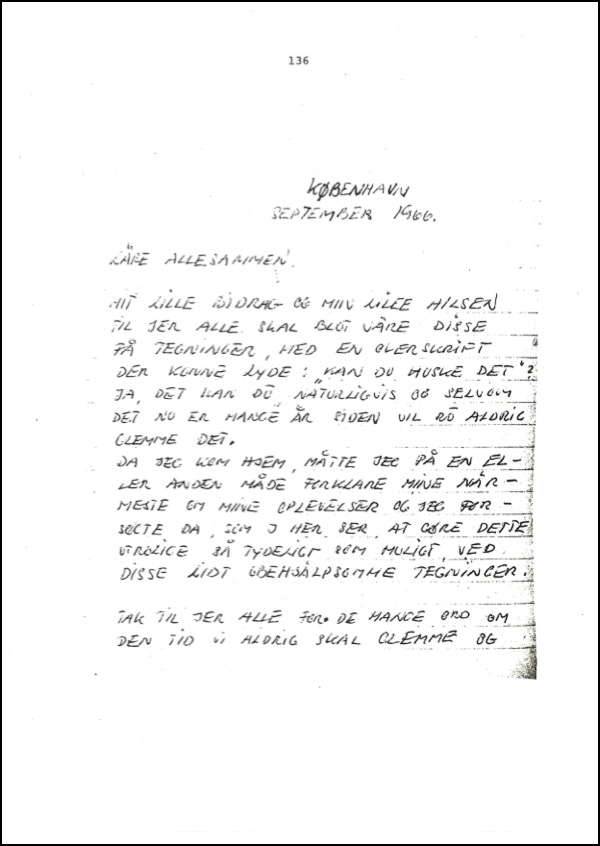 136
KØBENHAVN
SEPTEMBER 1966.
KÄRE ALLESAMMEN.
MIT LILLE BIDRAG OG MIN LILLE HILSEN
TIL JER ALLE SKAL BLOT VÄRE DISSE
FÅ TEGNINGER, MED EN OVERSKRIFT
DER KUNNE LYDE: "KAN DU HUSKE DET"?
JA, DET KAN DU, NATURLIGVIS OG SELVOM
DET NU ER MANGE ÅR SIDEN VIL DU ALDRIG
GLEMME DET.
DA JEG KOM HJEM, MÅTTE JEG PÅ EN EL-
LER ANDEN MÅDE FORKLARE MINE NÄR-
MESTE OM MINE OPLEVELSER OG JEG FOR-
SØGTE DA, SOM J HER SER, AT GØRE DETTE
UTROLIGE SÅ TYDELIGT SOM MULIGT, VED
DISSE LIDT UBEHJÄLPSOMME TEGNINGER.
TAK TIL JER ALLE FOR DE MANGE ORD OM
DEN TID VI ALDRIG SKAL GLEMME OG